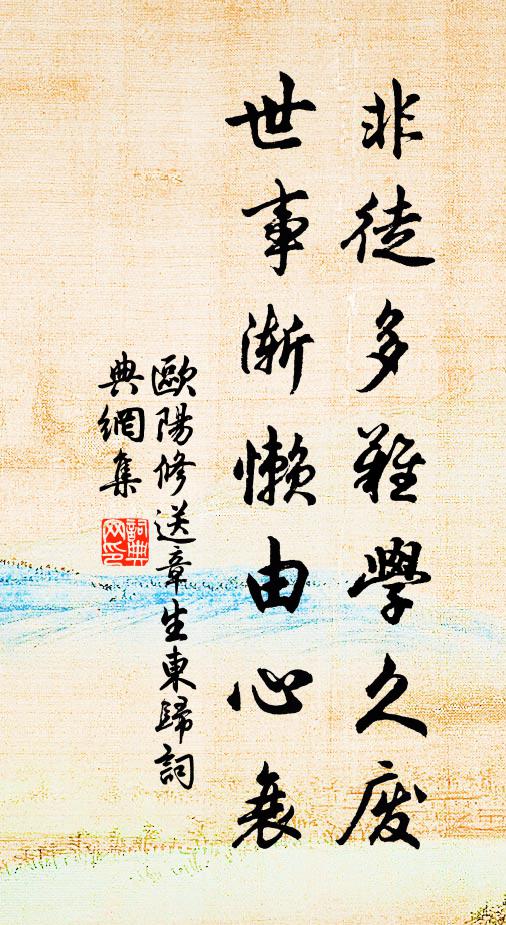 非徒多難學久廢
世事渐懒由心衰
歐陽修送章生東歸詞
典網集
詞典
网印